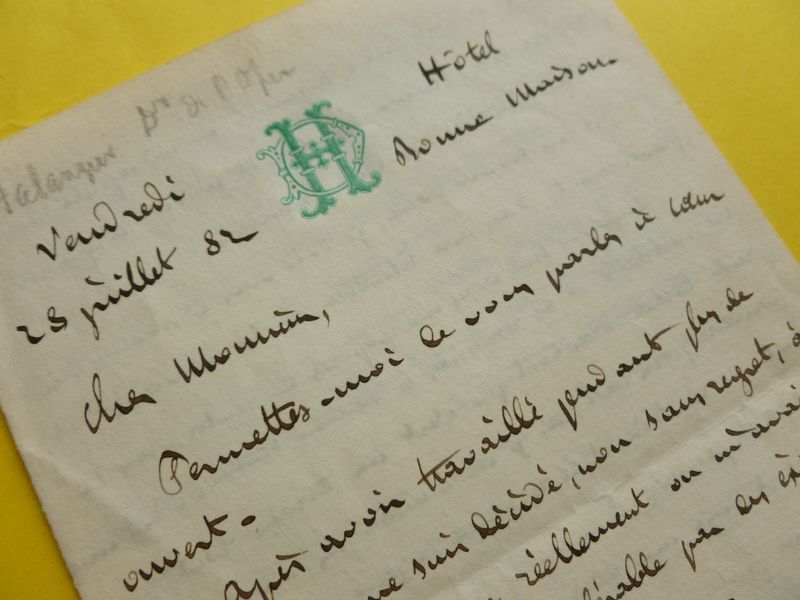 Halanzier Dr de l'Opéra
Hôtel
Bonne Maison.
HD
Vendredi
28 juillet 82
Cher Monsieur,
Permettez-moi de vous parler à cœur
ouvert.
Après avoir travaillé pendant plus de
me suis décidé, non sans regret, à
réellement on m'avait
par des